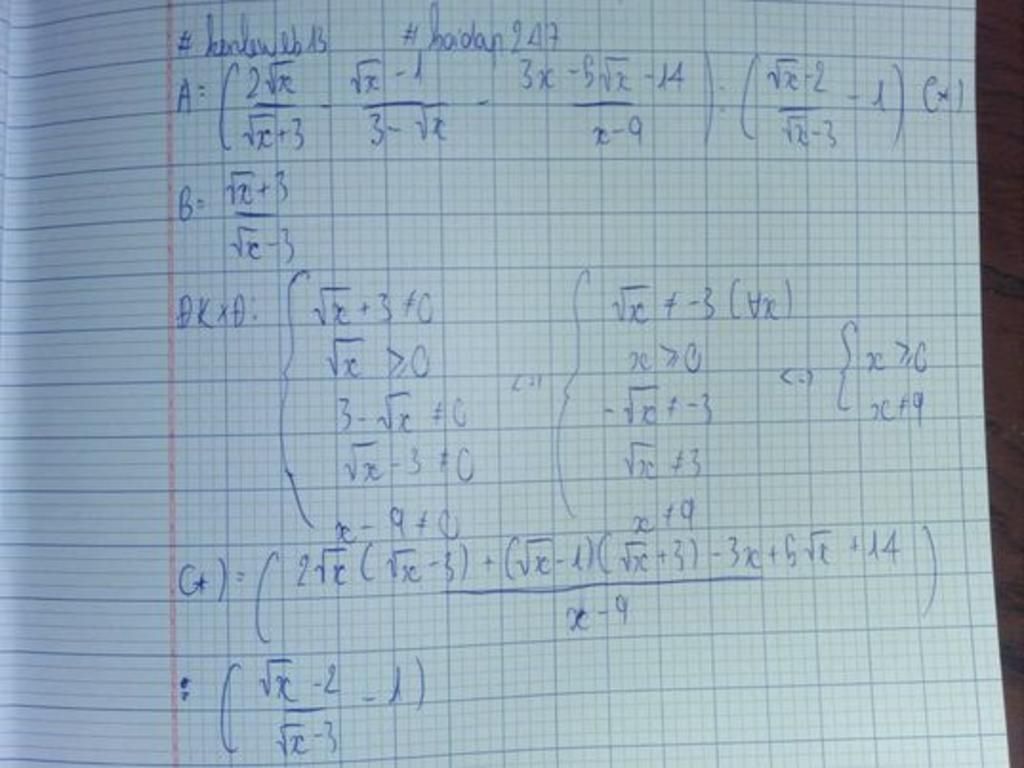 # hoidap247
A = (2√x/(√x+3) - (√x-1)/(3-√x) - (3x-5√x-14)/(x-9)) : ((√x-2)/(√x-3) - 1) (*)
B = (√x+3)/(√x-3)
ĐKXĐ: { √x+3≠0 <=> { √x≠-3 (∀x) <=> { x≥0
√x ≥0 x≥0 x≠9
3-√x≠0 -√x≠-3
√x-3≠0 √x≠3
x-9≠0 x≠9
(*) = ((2√x(√x-3)+(√x-1)(√x+3)-3x+5√x+14)/(x-9))
: ((√x-2)/(√x-3) - 1)